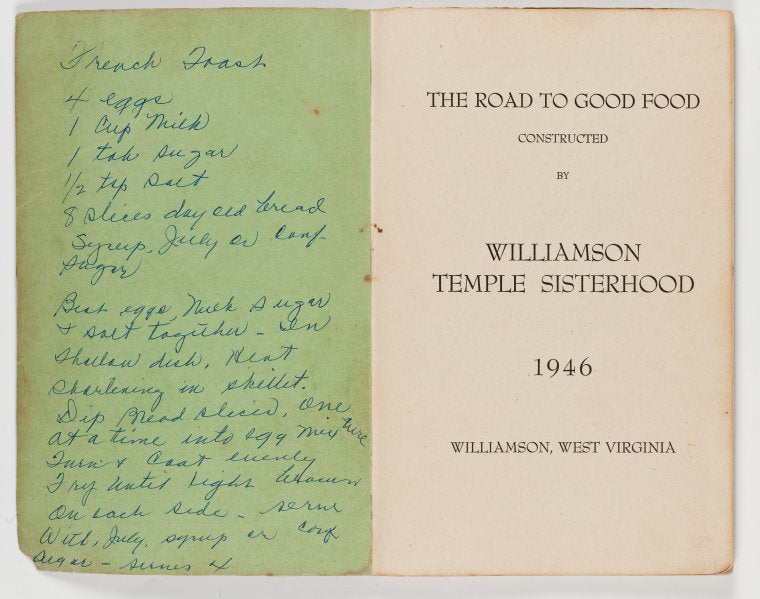 French Toast
4 eggs
1 Cup Milk
1 tab sugar
1/2 tsp salt
8 slices day old bread
Syrup, Jelly or Conf
Sugar
Beat eggs, Milk sugar
& salt together - In
shallow dish, Heat
shortening in skillet.
Dip Bread slices, one
at a time into egg mixture
Turn & Coat evenly
Fry until light brown
on each side - serve
With, Jelly, syrup or conf
sugar - serves 4
THE ROAD TO GOOD FOOD
CONSTRUCTED
BY
WILLIAMSON
TEMPLE SISTERHOOD
1946
WILLIAMSON, WEST VIRGINIA